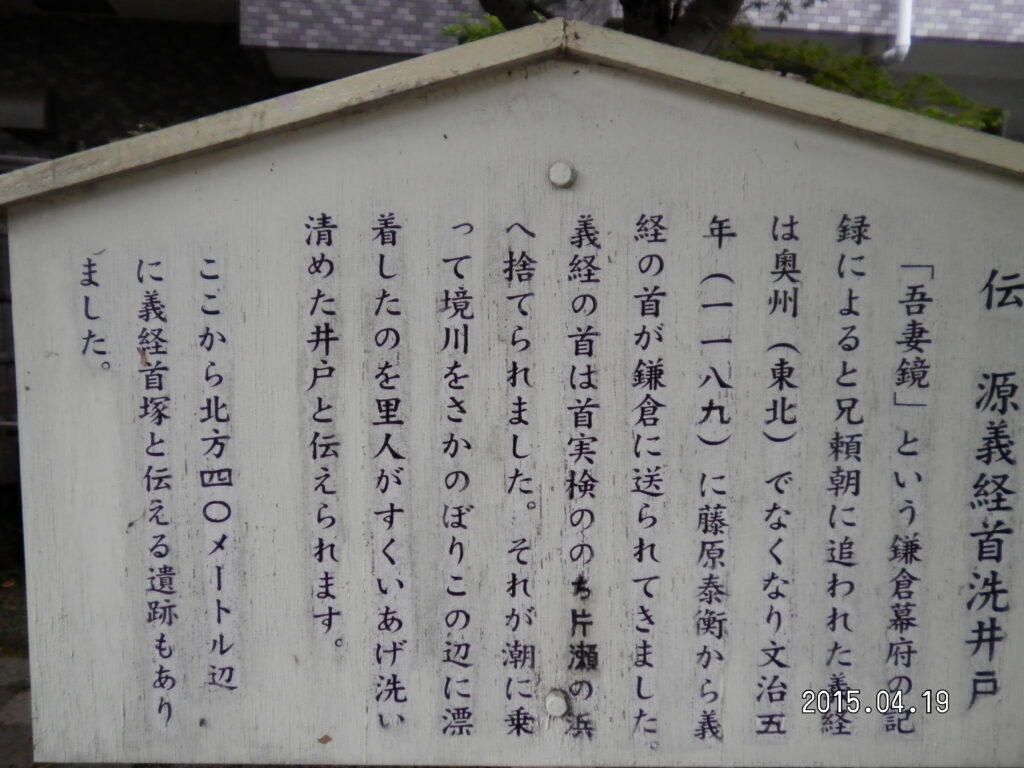 伝　源義経首洗井戸
「吾妻鏡」という鎌倉幕府の記
録によると兄頼朝に追われた義経
は奥州（東北）でなくなり文治五
年（一一八九）に藤原泰衡から義
経の首が鎌倉に送られてきました。
義経の首は首実検ののち片瀬の浜
へ捨てられました。それが潮に乗
って境川をさかのぼりこの辺に漂
着したのを里人がすくいあげ洗い
清めた井戸と伝えられます。
ここから北方四〇メートル辺
に義経首塚と伝える遺跡もあり
ました。
2015.04.19